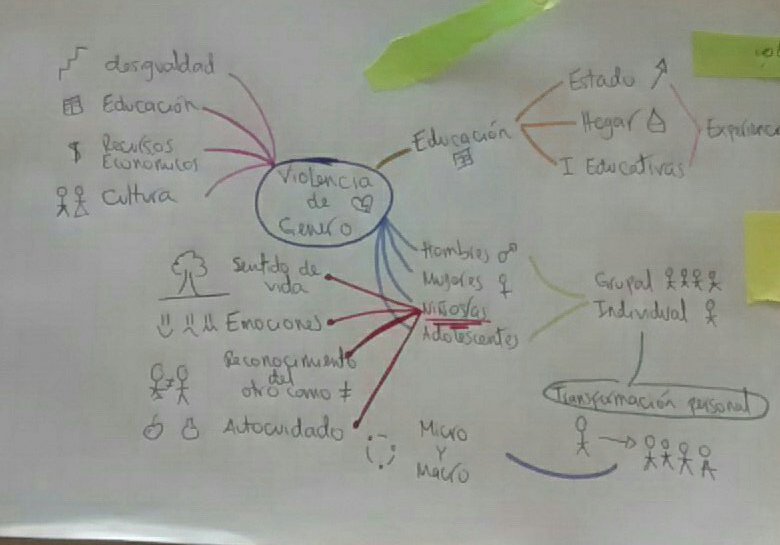 desgualdad
Educación
$ Recursos
Economicos
Cultura
Violencia
de
Genero
Educación
Estado
Hogar
I Educativas
Hombres ♂
Mujeres ♀
Niños/as
Adolescentes
Grupal
Individual
Transformación personal
Sentido de
vida
Emociones
Reconocimiento
del
otro como ≠
Autocuidado
Micro
Y
Macro